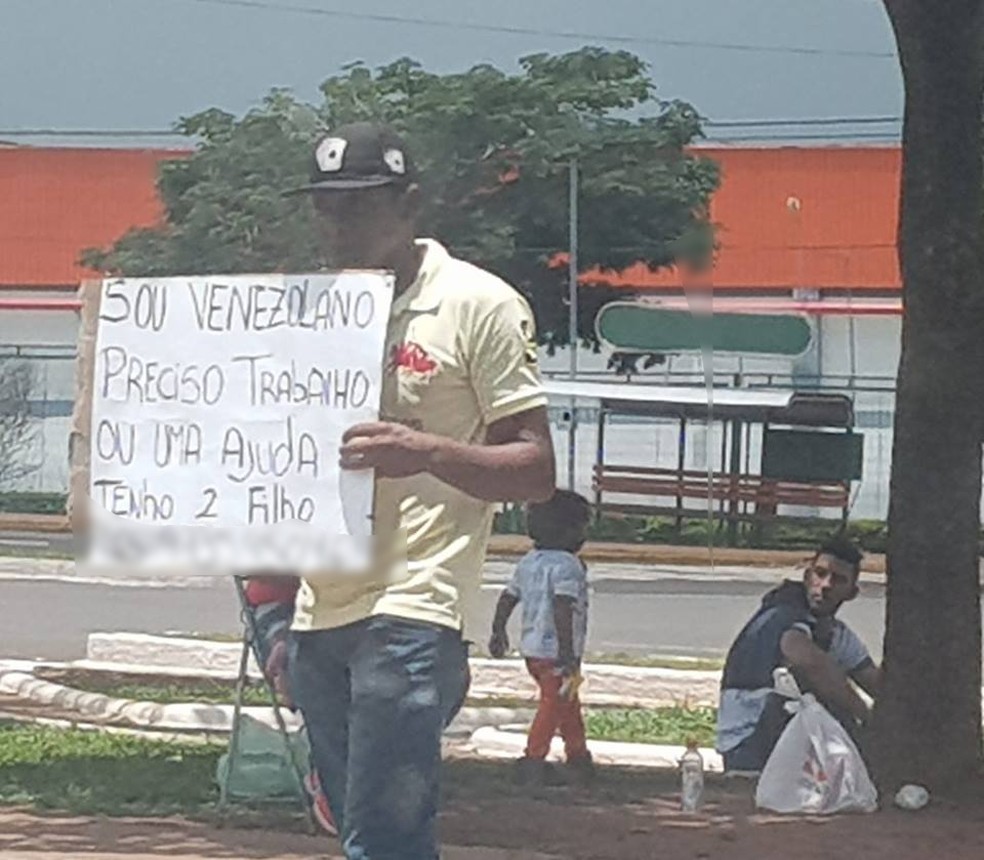 SOU VENEZOLANO
PRECISO TRABALHO
OU UMA AJUDA
TENHO 2 FILHO